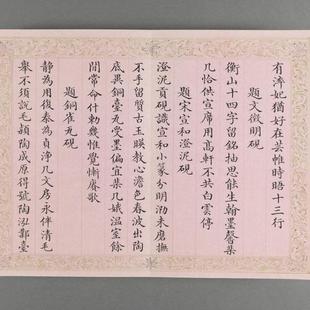 有濟妃猶好在芸帷時晤十三行
題文徵明硯
衡山十四字留銘抽思能生翰墨馨棐
几恰供宣席用高軒不共白雲停
題宋宣和澄泥硯
澄泥貢硯識宣和小篆分明泐未磨撫
不手留質古玉暎教心澹色春波出陶
底異銅臺瓦受墨偏宜棐几娥溫室餘
閒常命什勅幾惟覺慚賡歌
題銅雀瓦硯
靜為用復春為貞淨几文房永伴清毛
舉不須說毛頴陶成原得號陶泓鄴臺